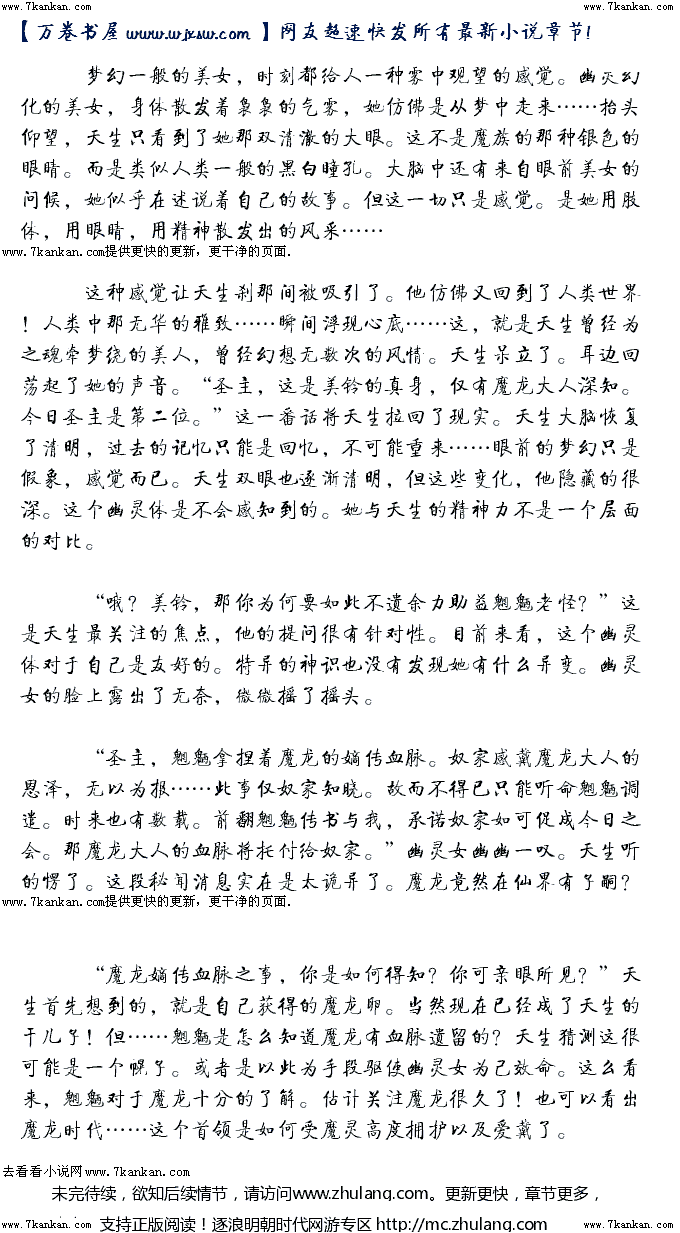 www.7kankan.com www.7kankan.com
【万卷书屋 www.wjxsw.com 】网友超速快发所有最新小说章节!
梦幻一般的美女，时刻都给人一种雾中观望的感觉。幽灵幻
化的美女，身体散发着袅袅的气雾，她仿佛是从梦中走来……抬头
仰望，天生只看到了她那双清澈的大眼。这不是魔族的那种银色的
眼睛。而是类似人类一般的黑白瞳孔。大脑中还有来自眼前美女的
问候，她似乎在述说着自己的故事。但这一切只是感觉。是她用肢
体，用眼睛，用精神散发出的风采……
www.7kankan.com提供更快的更新，更干净的页面.
这种感觉让天生刹那间被吸引了。他仿佛又回到了人类世界
！人类中那无华的雅致……瞬间浮现心底……这，就是天生曾经为
之魂牵梦绕的美人，曾经幻想无数次的风情。天生呆立了。耳边回
荡起了她的声音。“圣主，这是美铃的真身，仅有魔龙大人深知。
今日圣主是第二位。”这一番话将天生拉回了现实。天生大脑恢复
了清明，过去的记忆只能是回忆，不可能重来……眼前的梦幻只是
假象，感觉而已。天生双眼也逐渐清明，但这些变化，他隐藏的很
深。这个幽灵体是不会感知到的。她与天生的精神力不是一个层面
的对比。
“哦？美铃，那你为何要如此不遗余力助益魍魉老怪？”这
是天生最关注的焦点，他的提问很有针对性。目前来看，这个幽灵
体对于自己是友好的。特异的神识也没有发现她有什么异变。幽灵
女的脸上露出了无奈，微微摇了摇头。
“圣主，魍魉拿捏着魔龙的嫡传血脉。奴家感戴魔龙大人的
恩泽，无以为报……此事仅奴家知晓。故而不得已只能听命魍魉调
遣。时来也有数载。前翻魍魉传书与我，承诺奴家如可促成今日之
会。那魔龙大人的血脉将托付给奴家。”幽灵女幽幽一叹。天生听
的愣了。这段秘闻消息实在是太诡异了。魔龙竟然在仙界有子嗣？
www.7kankan.com提供更快的更新，更干净的页面.
“魔龙嫡传血脉之事，你是如何得知？你可亲眼所见？”天
生首先想到的，就是自己获得的魔龙卵。当然现在已经成了天生的
干儿子！但……魍魉是怎么知道魔龙有血脉遗留的？天生猜测这很
可能是一个幌子。或者是以此为手段驱使幽灵女为己效命。这么看
来，魍魉对于魔龙十分的了解。估计关注魔龙很久了！也可以看出
魔龙时代……这个首领是如何受魔灵高度拥护以及爱戴了。
去看看小说网www.7kankan.com
未完待续，欲知后续情节，请访问www.zhulang.com。更新更快，章节更多，
www.7kankan.com 支持正版阅读！逐浪明朝时代网游专区 http://mc.zhulang.com www.7kankan.com